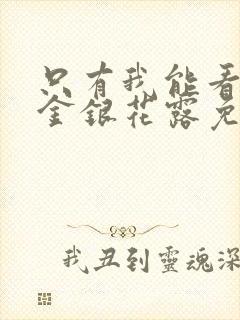 只有我能看
金銀花露免
我丑到靈魂深